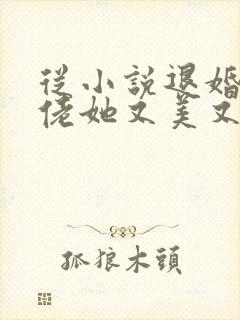 從小說退婚
佬她又美又
孤狼木頭